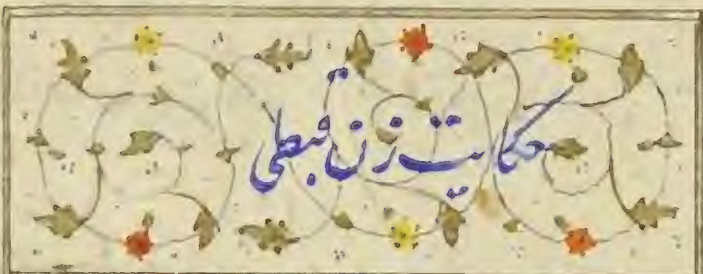 حکایت زن قبطی